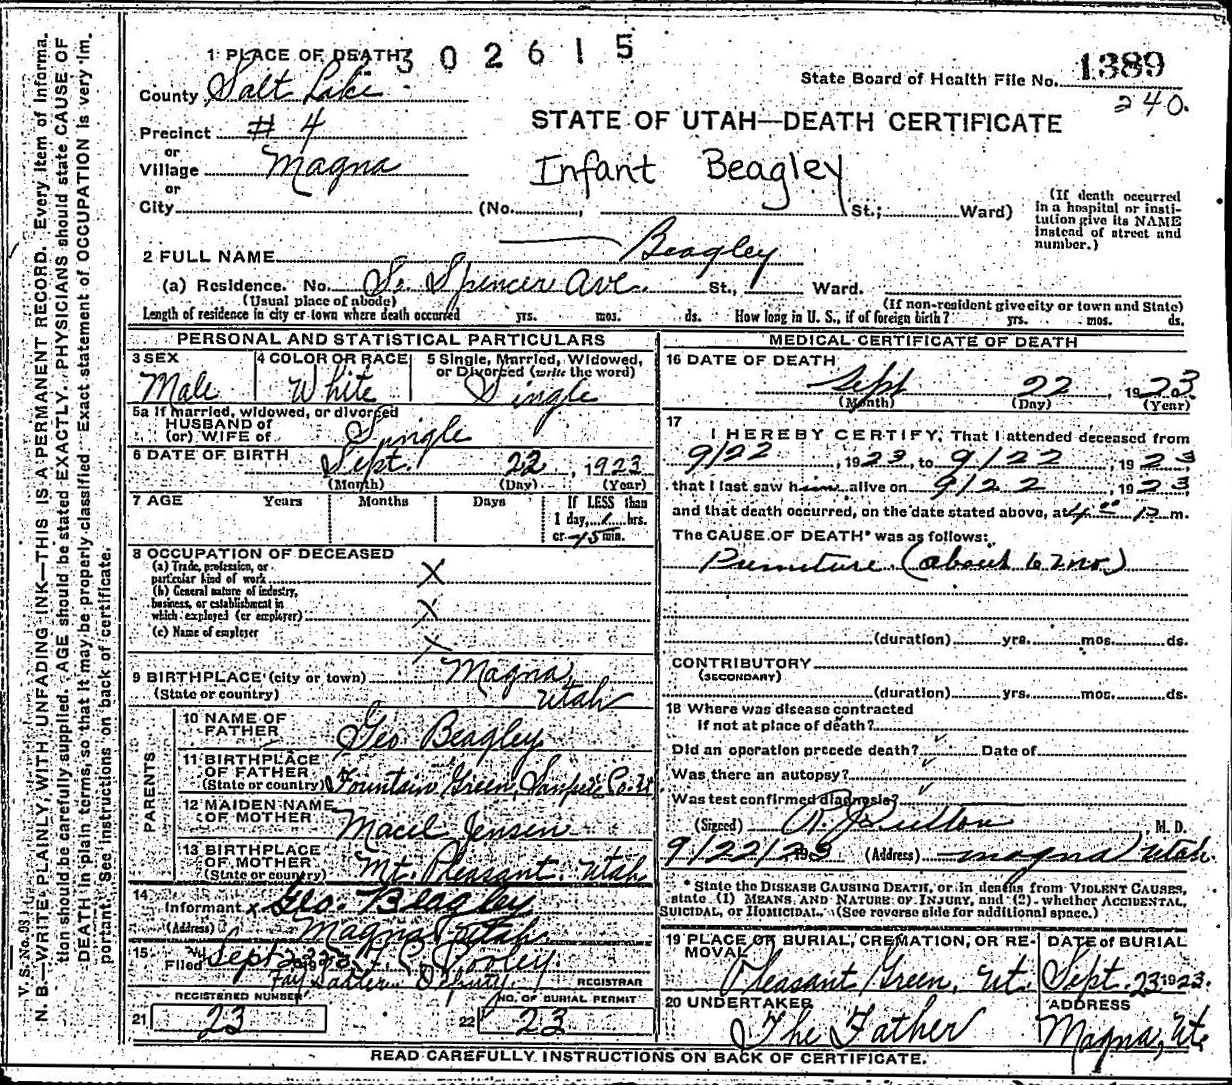 302615
1 PLACE OF DEATH
State Board of Health File No. 1389
County Salt Lake
240.
STATE OF UTAH—DEATH CERTIFICATE
Precinct # 4
or
Village Magna
Infant Beagley
or
City (No. , St.; Ward)
(If death occurred in a hospital or insti-
tution give its NAME
instead of street and
number.)
2 FULL NAME Beagley
(a) Residence. No. So. Spencer Ave. St., Ward.
(Usual place of abode) (If non-resident give city or town and State)
Length of residence in city or town where death occurred yrs. mos. ds. How long in U. S., if of foreign birth? yrs. mos. ds.
PERSONAL AND STATISTICAL PARTICULARS
3 SEX
Male
4 COLOR OR RACE
White
5 Single, Married, Widowed,
or Divorced (write the word)
Single
5a If married, widowed, or divorced
HUSBAND of
(or) WIFE of Single
6 DATE OF BIRTH Sept. 22, 1923
(Month) (Day) (Year)
7 AGE Years Months Days If LESS than
1 day, 1 hrs.
or 45 min.
8 OCCUPATION OF DECEASED
(a) Trade, profession, or
particular kind of work X
(b) General nature of industry,
business, or establishment in
which employed (or employer) X
(c) Name of employer X
9 BIRTHPLACE (city or town) Magna,
(State or country) Utah
PARENTS
10 NAME OF
FATHER Geo Beagley
11 BIRTHPLACE
OF FATHER
(State or country) Fountain Green, Sanpete Co. Ut
12 MAIDEN NAME
OF MOTHER Macel Jensen
13 BIRTHPLACE
OF MOTHER
(State or country) Mt. Pleasant, Utah
14
Informant x Geo. Beagley
(Address) Magna Utah.
15
Filed Sept
Deputy REGISTRAR
REGISTERED NUMBER
21 23
NO. OF BURIAL PERMIT
22 23
MEDICAL CERTIFICATE OF DEATH
16 DATE OF DEATH
Sept 22, 1923
(Month) (Day) (Year)
17
I HEREBY CERTIFY, That I attended deceased from
9/22, 1923, to 9/22, 1923
that I last saw him alive on 9/22, 1923
and that death occurred, on the date stated above, at 4:00 P m.
The CAUSE OF DEATH* was as follows:
Premature (about 6 mo.)
(duration) yrs. mos. ds.
CONTRIBUTORY
(SECONDARY)
(duration) yrs. mos. ds.
18 Where was disease contracted
if not at place of death?
Did an operation precede death? Date of
Was there an autopsy?
Was test confirmed diagnosis?
(Signed) M. D.
9/22/23 (Address) Magna Utah.
* State the DISEASE CAUSING DEATH, or in deaths from VIOLENT CAUSES,
state (1) MEANS AND NATURE OF INJURY, and (2) whether ACCIDENTAL,
SUICIDAL, or HOMICIDAL. (See reverse side for additional space.)
19 PLACE OF BURIAL, CREMATION, OR RE-
MOVAL
Pleasant Green, Ut.
DATE of BURIAL
Sept. 23 1923.
20 UNDERTAKER
The Father
ADDRESS
Magna, Ut.
READ CAREFULLY INSTRUCTIONS ON BACK OF CERTIFICATE.
V. S. No. 93
N. B.—WRITE PLAINLY, WITH UNFADING INK—THIS IS A PERMANENT RECORD. Every item of informa-
tion should be carefully supplied. AGE should be stated EXACTLY. PHYSICIANS should state CAUSE OF
DEATH in plain terms, so that it may be properly classified. Exact statement of OCCUPATION is very im-
portant. See instructions on back of certificate.